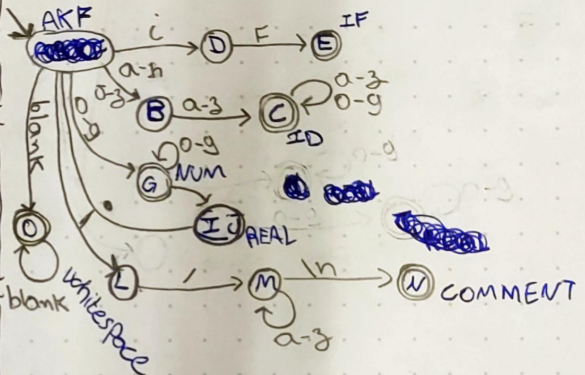 AKF
i
D
F
E
IF
a-h
j-z
B
a-z
C
a-z
0-9
ID
blank
0
9
G
0-9
NUM
IJ
REAL
0-9
O
blank
whitespace
L
/
M
\n
N
COMMENT
a-z